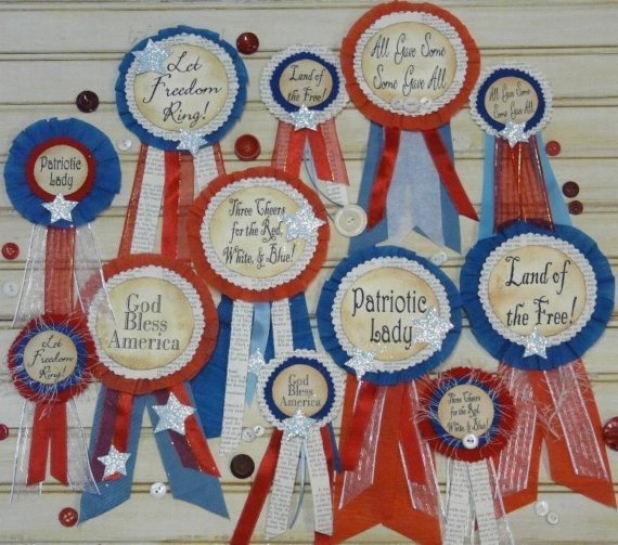 Let
Freedom
Ring!
Land of
the Free!
All Gave Some
Some Gave All
All Gave Some
Some Gave All
Patriotic
Lady
Three Cheers
for the Red,
White, & Blue!
God
Bless
America
Patriotic
Lady
Land of
the Free!
Let
Freedom
Ring!
God
Bless
America
Three Cheers
for the Red,
White, & Blue!